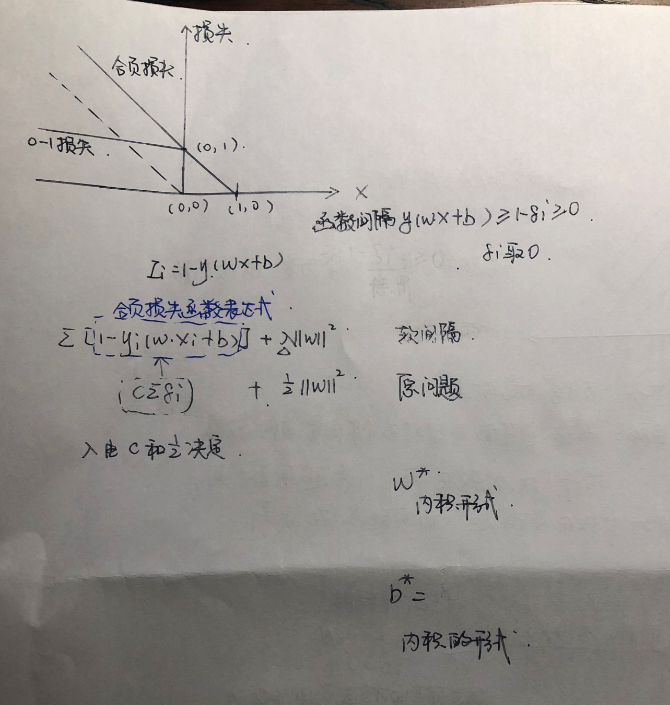 损失.
合页损失.
0-1损失.
(0,1).
(0,0) (1,0) X
函数间隔y(wx+b)≥1-ξi≥0.
ξi取0.
Ii=1-y.(wx+b)
合页损失函数表达式.
Σ[1-yi(w·xi+b)] + λ||w||² 软间隔.
(CΣξi) + ½||w||² 原问题
λ由C和½决定.
w*.
内积形式.
b*=
内积的形式.